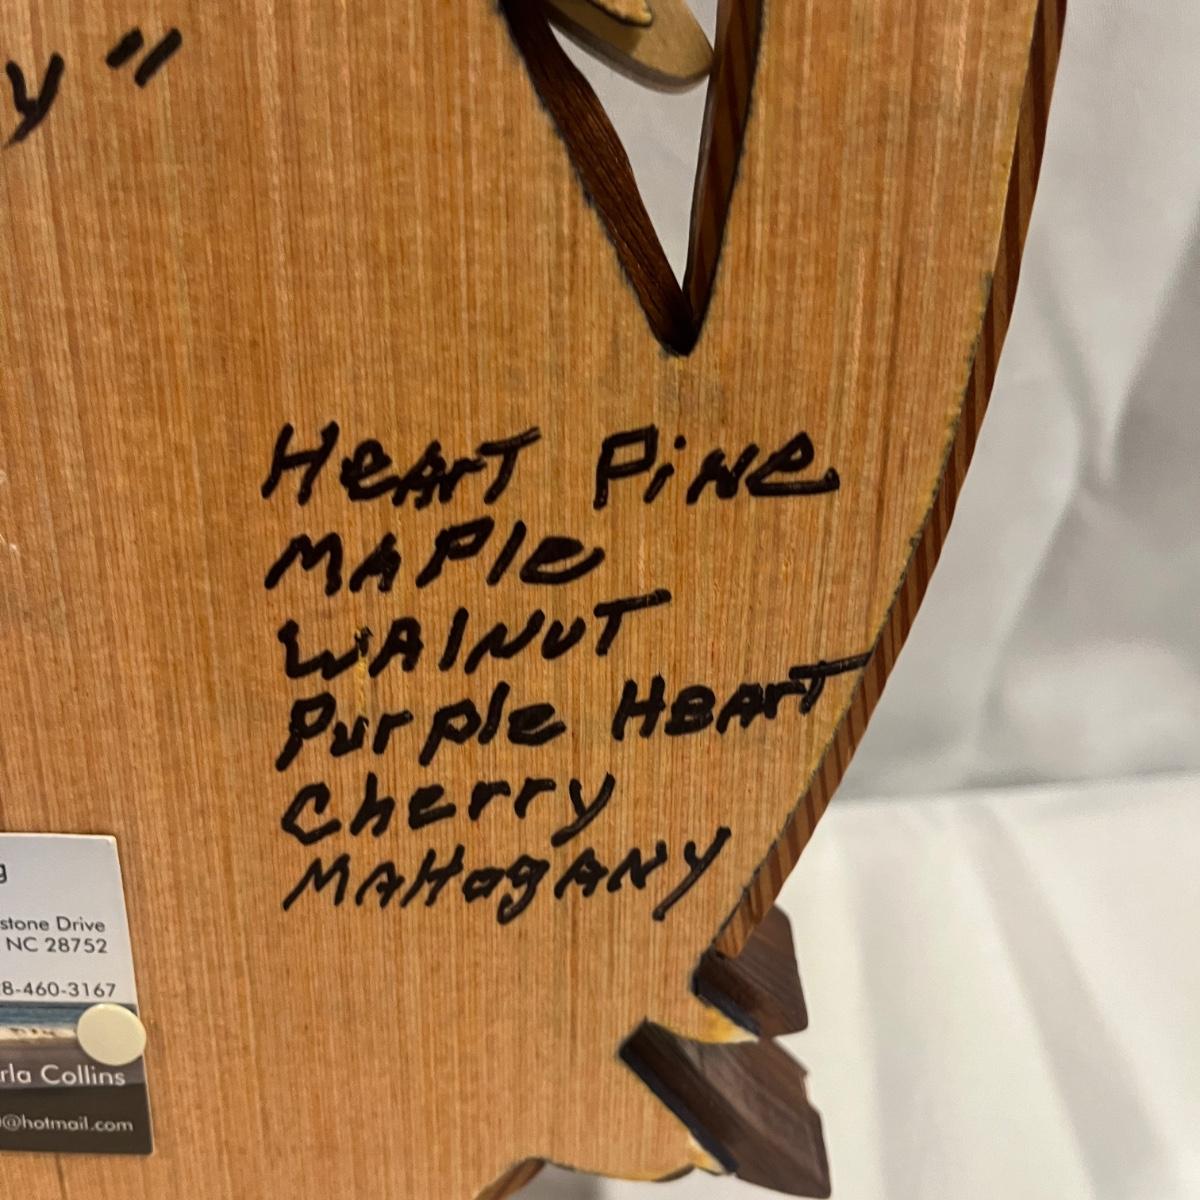 y"
HeArT PiNe
MAPle
WAlNuT
Purple HeArT
Cherry
MAHogANy
g
stone Drive
NC 28752
8-460-3167
rla Collins
@hotmail.com